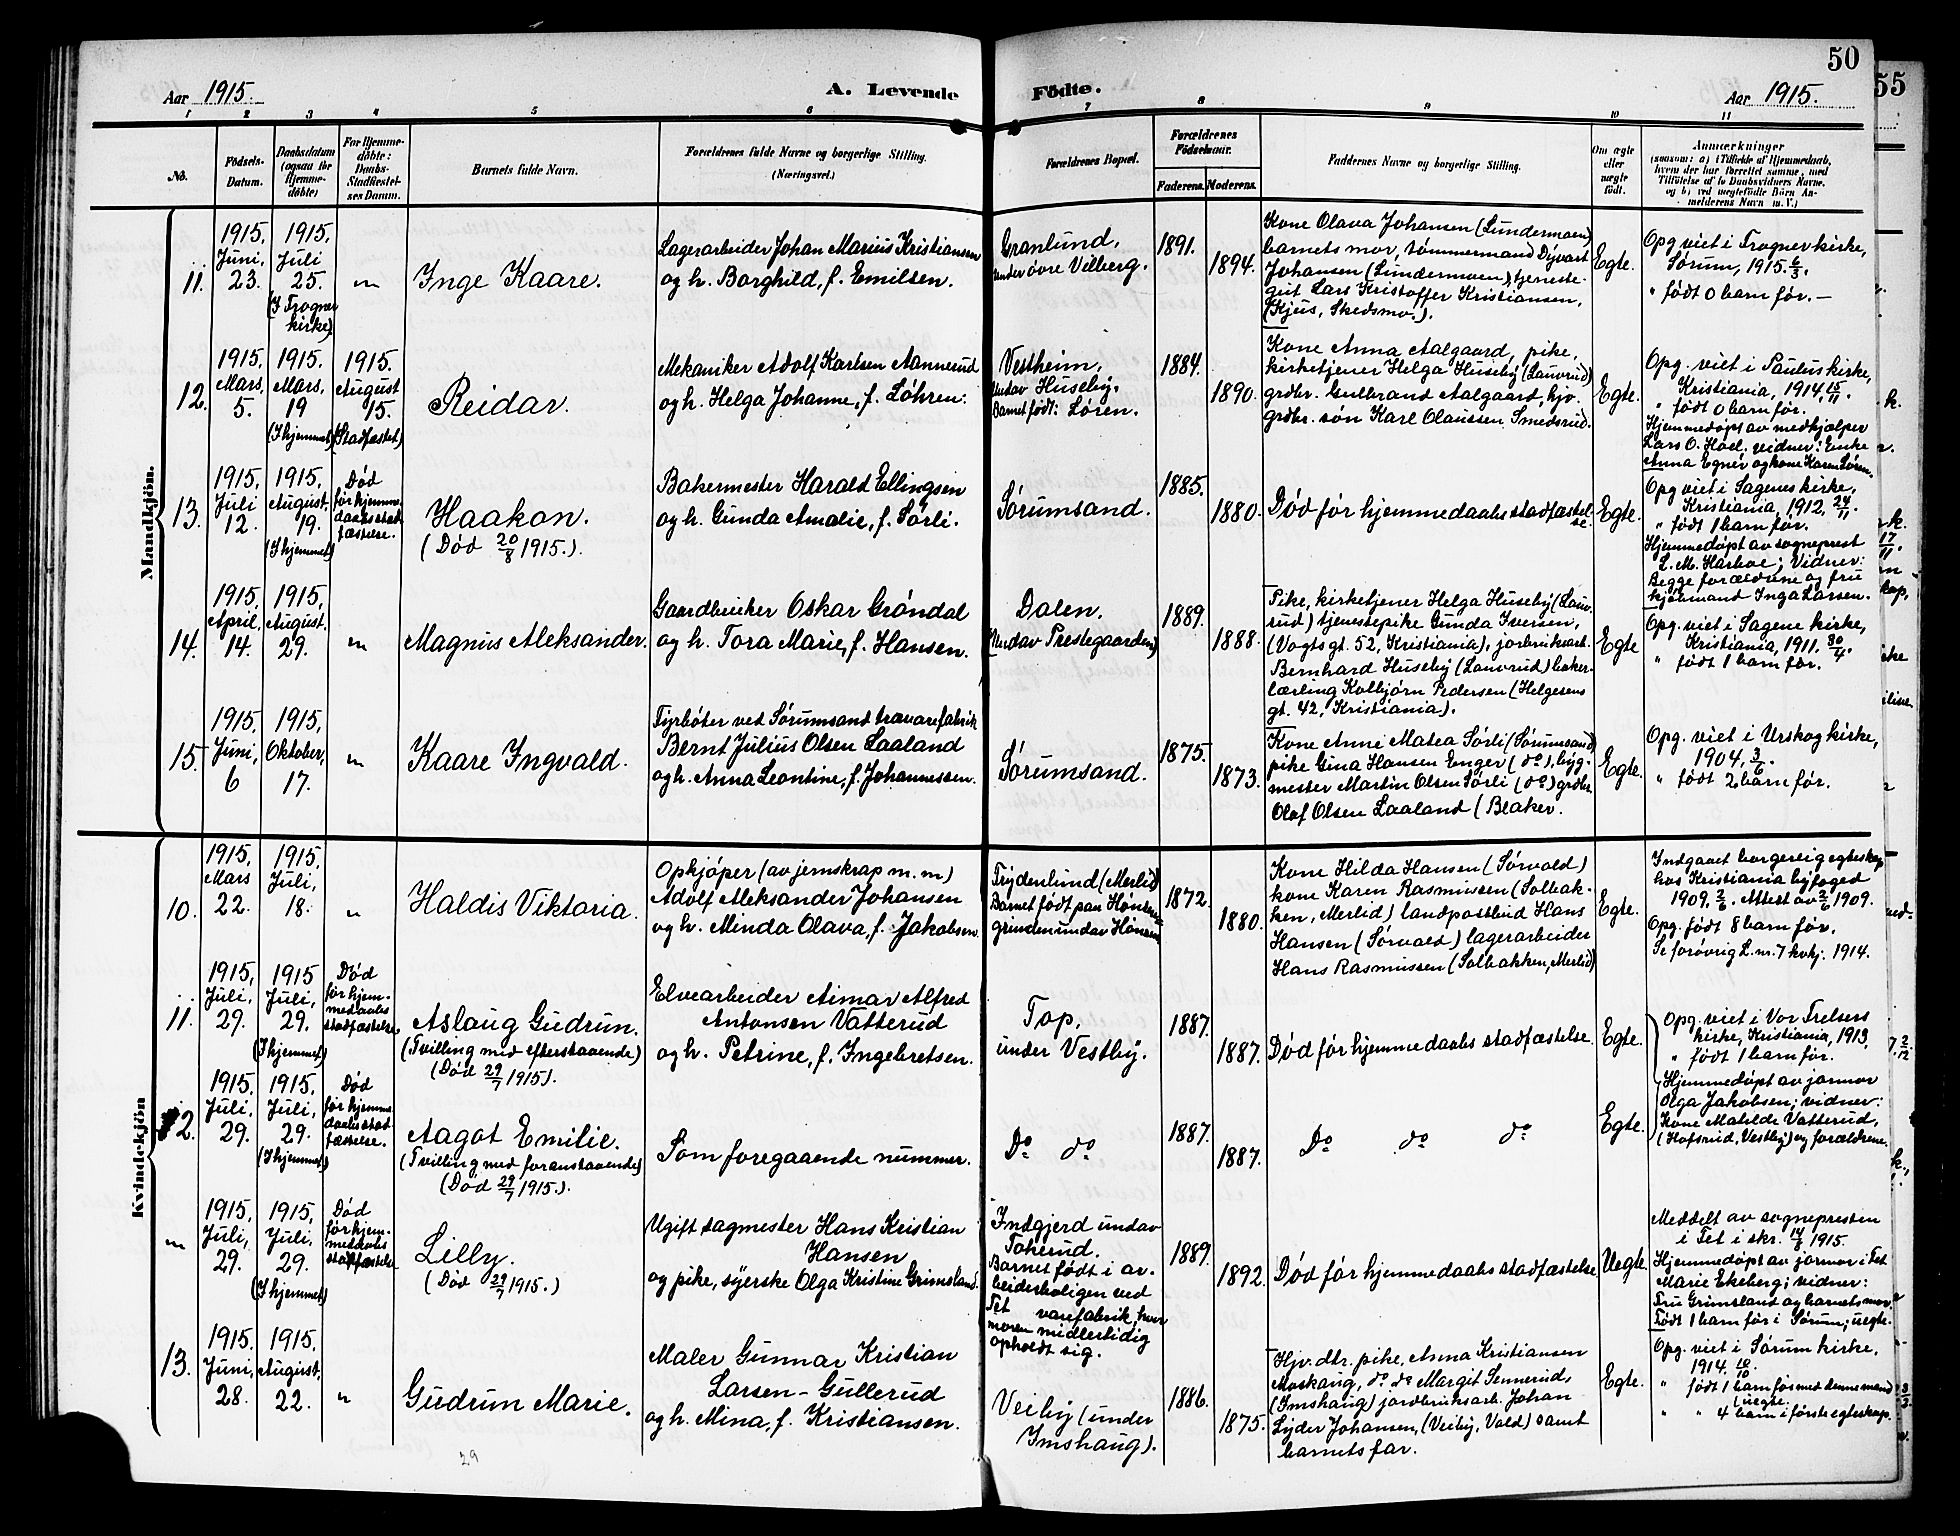 50
55
Aar 1915.
A. Levende
Fødte.
Aar 1915.
1 2 3 4 5 6 7 8 9 10 11
No.
Fødsels-
Datum.
Daabsdatum
(ogsaa for
Hjemme-
døbte)
For Hjemme-
døbte:
Daabs-
Stadfæstel-
ses Datum.
Barnets fulde Navn.
Forældrenes fulde Navne og borgerlige Stilling.
(Næringsvei.)
Forældrenes Bopæl.
Forældrenes
Fødselsaar.
Faderens. Moderens.
Faddernes Navne og borgerlige Stilling.
Om ægte
eller
uægte
født.
Anmærkninger
(saasom: a) i Tilfælde af Hjemmedaab,
hvem der har forrettet samme, med
Tilføielse af to Daabsvidners Navne,
og b) ved uegtefødte Børn An-
melderens Navn m. V.)
Mandkjön.
11.
1915.
Juni,
23.
1915.
Juli
25.
(I Frogner
kirke)
"
Inge Kaare.
Lagerarbeider Johan Marius Kristiansen
og h. Borghild, f. Emilsen.
Granlund,
under øvre Vilberg.
1891.
1894.
Kone Olava Johansen (Lundermoen)
barnets mor, tømmermand Dyvart
Johansen (Lundermoen), tjeneste-
gut Lars Kristoffer Kristiansen,
(Kjus, Skedsmo.).
Egte.
Opg. viet i Frogner kirke,
Sørum, 1915. 6/3.
" født 0 barn før. —
12.
1915.
Mars.
5.
1915.
Mars,
19
(I hjemmet)
1915.
August
15.
(Stadfæstet)
Reidar.
Mekaniker Adolf Karlsen Aannerud
og h. Helga Johanne, f. Løhren.
Vestheim,
undav Huseby.
Barnet født: Løren.
1884.
1890.
Kone Anna Aalgaard, pike,
kirketjener Helga Huseby (Lauvrud)
grdbr. Gulbrand Aalgaard, hjv.
grdbr. søn Karl Olaussen Smedsrud.
Egte.
Opg. viet i Paulus kirke,
Kristiania, 1914, 15/11.
" født 0 barn før.
Hjemmedøpt av medhjælper
Lars O. Hoel. vidner: Enke
Anna Egner og kone Karen Løren.
13.
1915,
Juli
12.
1915.
August.
19.
(I hjemmet)
Død
før hjemme
daabs stad
fæstelse.
Haakon.
(Død 20/8 1915.).
Bakermester Harald Ellingsen
og h. Gunda Amalie, f. Sørli.
Sørumsand.
1885.
1880.
Død før hjemmedaabs stadfæstel-
se.
Egte.
Opg. viet i Sagenes kirke,
Kristiania, 1912, 24/11
" født 1 barn før.
Hjemmedøpt av sogneprest
L. M. Harboe; Vidner:
Begge forældrene og fru
kjørmand Inga Larsen.
14.
1915.
April,
14.
1915.
August.
29.
"
Magnus Aleksander.
Gaardbruker Oskar Grøndal
og h. Tora Marie, f. Hansen.
Dalen.
(undav Prestegaarden)
1889.
1888.
Pike, kirketjener Helga Huseby (Lauv-
rud) tjenestepike Gunda Iversen,
(Vogts gt. 52, Kristiania), jordbruksarb.
Bernhard Huseby (Lauvrud) baker-
lærling Kolbjørn Pedersen (Helgesens
gt. 42, Kristiania).
Egte
Opg. viet i Sagene kirke,
Kristiania, 1911. 30/4.
" født 1 barn før.
15.
1915.
Juni,
6
1915,
Oktober,
17.
"
Kaare Ingvald.
Fyrbøter ved Sørumsand trævarefabrik
Bernt Julius Olsen Laaland
og h. Anna Leontine, f. Johannessen.
Sørumsand.
1875.
1873.
Kone Anne Matea Sørli (Sørumsand)
pike Gina Hansen Enger (do), byg-
mester Martin Olsen Sørli (do) grdbr.
Olof Olsen Laaland (Blaker.
Egte.
Opg. viet i Urskog kirke,
1904, 3/6.
" født 2 barn før.
Kvindekjön
10.
1915,
Mars
22.
1915.
Juli,
18.
"
Haldis Viktoria.
Opkjøper (av jernskrap m. m)
Adolf Aleksander Johansen
og h. Minda Olava, f. Jakobsen.
Frydenlund (Merlid)
1872.
1880.
Kone Hilda Hansen (Sørvald)
kone Karen Rasmussen (Solbak-
ken, Merlid) landpostbud Hans
Hansen (Sørvald) lagerarbeider
Hans Rasmussen (Solbakken, Merlid)
Egte.
Indgaaet borgerlig egteskap
hos Kristiania byfoged
1909, 2/6. Attest av 2/6 1909.
Opg. født 8 barn før.
Se forøvrig L. nr. 7 kvkj. 1914.
11.
1915,
Juli,
29.
1915
Juli,
29.
(I hjemmet)
Død
før hjem-
medaabs
stadfæstelse.
Aslaug Gudrun.
(Tvilling med efterstaaende)
(Død 29/7 1915).
Elvearbeider Aimar Alfred
Antonsen Vatterud
og h. Petrine, f. Ingebretsen.
Top,
under Vestby.
1887.
1887.
Død før hjemmedaabs stadfæstelse.
Egte.
Opg. viet i Vor Frelsers
kirke, Kristiania, 1913,
" født 1 barn før.
Hjemmedøpt av jormor
Olga Jakobsen; vidner:
Kone Matilde Vatterud,
(Hofsrud, Vestby) og forældrene.
12.
1915.
Juli,
29.
1915.
Juli,
29.
(I hjemmet)
Død
før hjemme
daabs stad
fæstelse.
Aagot Emilie.
(Tvilling med foranstaaende)
(Død 29/7 1915).
Som foregaaende nummer.
Do do
1887.
1887.
Do do do
Egte.
"
1915.
Juli,
29.
1915.
Juli,
29.
(I hjemmet)
Død
før hjem-
medaabs
stadfæstelse
Lilly.
(Død 29/7 1915.)
Ugift sagmester Hans Kristian
Hansen
og pike, syerske Olga Kristine Grimsland.
Indgjerd undav
Barnet født i ar-
beiderboligen ved
Fet varefabrik, hvor
moren midlertidig
opholdt sig.
1889.
1892.
Død før hjemmedaabs stadfæstelse
Uegte.
Meddelt av sognepresten
i Fet i skr. 14/8 1915.
Hjemmedøpt av jormor i Fet
Marie Ekeberg; vidner:
Fru Grimsland og barnets mor.
Født 1 barn før i Sørum; uegte.
13.
1915.
Juni,
28.
1915.
August,
22.
"
Gudrun Marie.
Maler Gunnar Kristian
Larsen-Gullerud
og h. Mina, f. Kristiansen.
Veiby (under
Imshaug).
1886.
1875.
Hjv. dtr. pike, Anna Kristiansen
Moskaug, do do Margit Sennerud,
(Imshaug) jordbruksarb. Johan
Lyder Johansen, (Veiby, Vald) samt
barnets far.
Egte.
Opg. viet i Sørum kirke,
1914. 10/10.
" født 1 barn før med denne mand
(uegte.
" " 4 barn i første egteskap.
29